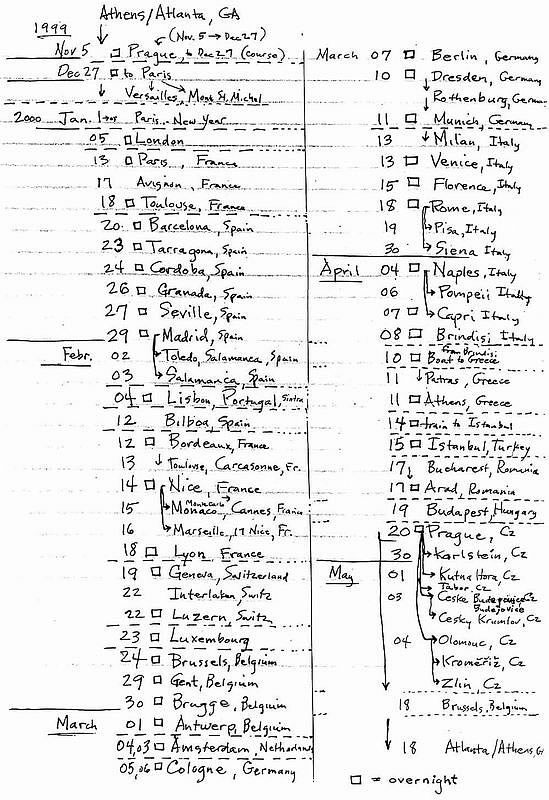 Athens/Atlanta, GA
1999
(Nov. 5 → Dec 27)
Nov 5 □ Prague, to Dec 27 (course)
Dec 27 □ to Paris
Versailles, Mont St. Michel
2000 Jan. 1 Paris.. New Year
05 □ London
13 □ Paris, France
17 Avignon, France
18 □ Toulouse, France
20 □ Barcelona, Spain
23 □ Tarragona, Spain
24 □ Cordoba, Spain
26 □ Granada, Spain
27 □ Seville, Spain
29 □ Madrid, Spain
Febr. 02 Toledo, Salamanca, Spain
03 Salamanca, Spain
04 □ Lisbon, Portugal, Sintra
12 Bilboa, Spain
12 □ Bordeaux, France
13 ↓ Toulouse, Carcasonne, Fr.
14 □ Nice, France
15 Monaco, Monte Carlo, Cannes, France
16 Marseille, 17 Nice, Fr.
18 □ Lyon, France
19 □ Geneva, Switzerland
22 Interlaken, Switz
22 □ Luzern, Switz
23 □ Luxembourg
24 □ Brussels, Belgium
29 □ Gent, Belgium
30 □ Brugge, Belgium
March 01 □ Antwerp, Belgium
04,03 □ Amsterdam, Netherlands
05,06 □ Cologne, Germany
March 07 □ Berlin, Germany
10 □ Dresden, Germany
Rothenburg, German
11 □ Munich, Germany
13 ↓ Milan, Italy
13 □ Venice, Italy
15 □ Florence, Italy
18 □ Rome, Italy
19 Pisa, Italy
30 Siena Italy
April 04 □ Naples, Italy
06 Pompeii Italy
07 □ Capri Italy
08 □ Brindisi, Italy
from Brindisi
10 □ Boat to Greece
11 ↓ Patras, Greece
11 □ Athens, Greece
14 □ train to Istanbul
15 □ Istanbul, Turkey
17 ↓ Bucharest, Romania
17 □ Arad, Romania
19 Budapest, Hungary
20 □ Prague, Cz
30 Karlstein, Cz
May 01 Kutna Hora, Cz
Tabor, Cz
03 Ceske Budejovice, Cz
Budejovice
Cesky Krumlov, Cz
04 Olomouc, Cz
Kroměříž, Cz
Zlin, Cz
18 Brussels, Belgium
18 Atlanta/Athens, GA
□ = overnight